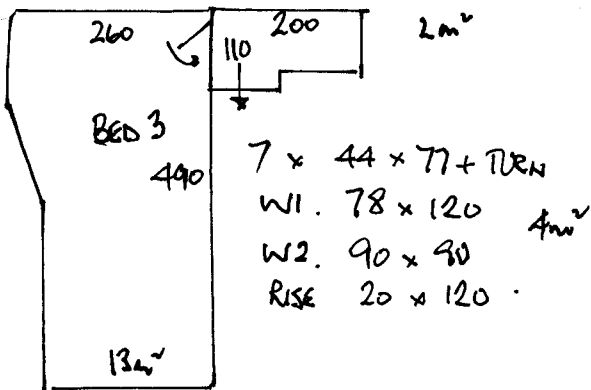 260
200
2m²
110
BED 3
490
7 x 44 x 77 + TURN
W1. 78 x 120
4m²
W2. 90 x 90
RISE 20 x 120.
13m²